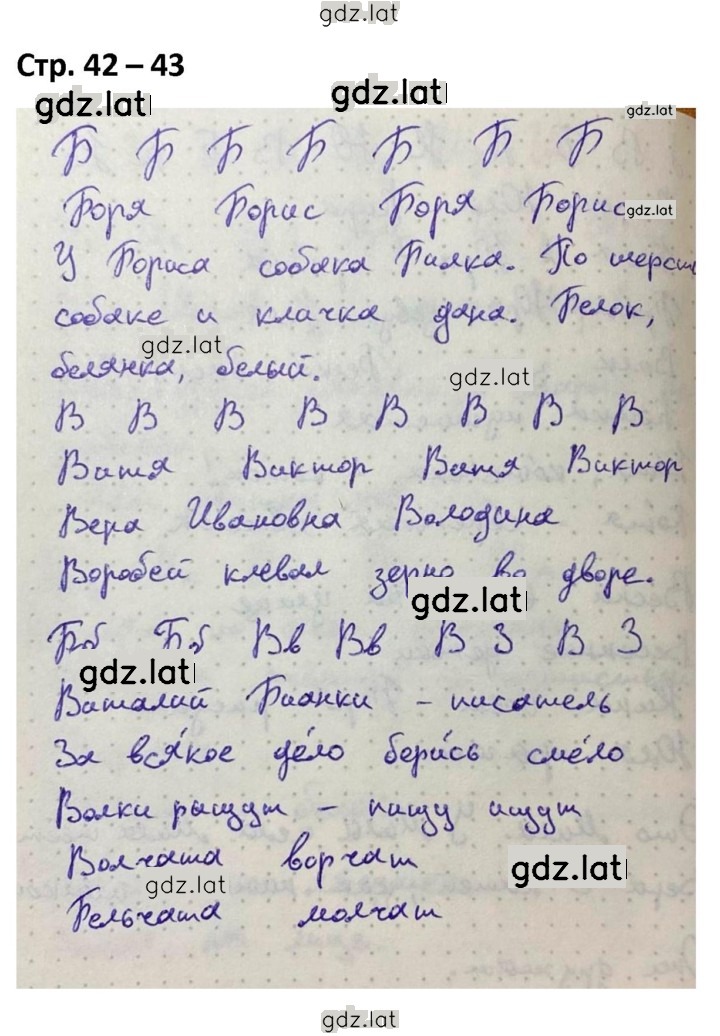 gdz.lat
Стр. 42 – 43
gdz.lat gdz.lat gdz.lat
Б Б Б Б Б Б Б
Боря Борис Боря Борис
gdz.lat
У Бориса собака Билка. По шерсти
собаке и кличка дана. Белок,
gdz.lat
белянка, белый.
gdz.lat
В В В В В В В В
Витя Виктор Витя Виктор
Вера Ивановна Володина
Воробей клевал зерно во дворе.
gdz.lat
Бб Бб Вв Вв В З В З
gdz.lat
Виталий Бианки – писатель
За вся́кое де́ло бери́сь сме́ло
Волки рыщут – пищу ищут
Волчата ворчат
gdz.lat
gdz.lat
Бельчата молчат
gdz.lat